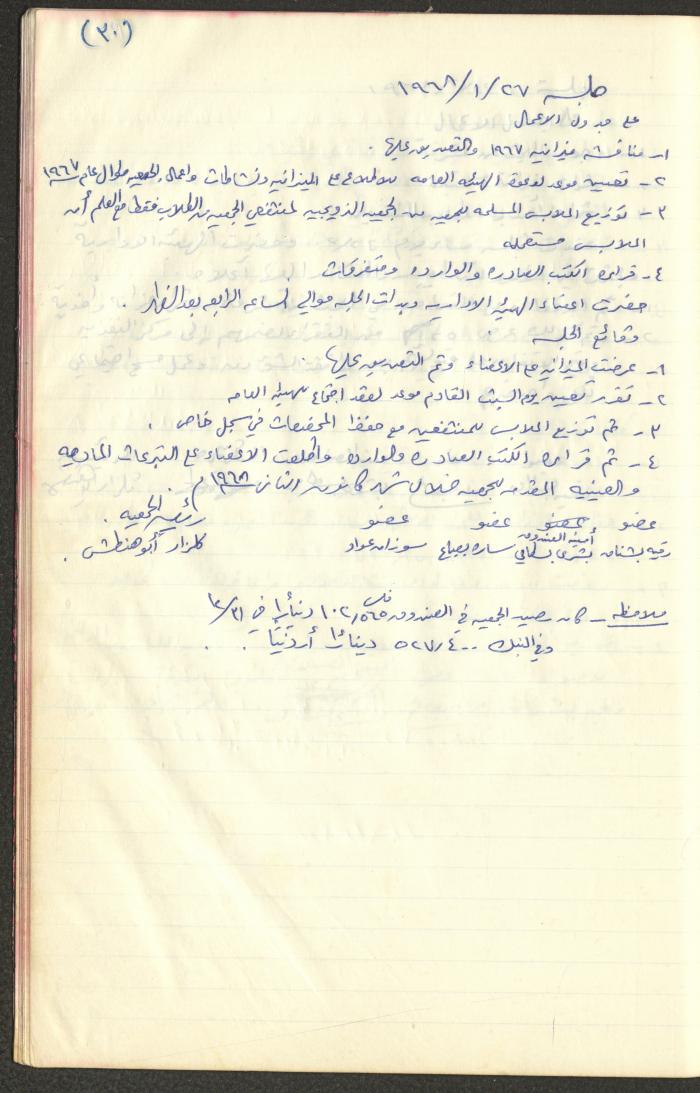 (٣٠)
جلسة ٢٧/١/١٩٦٨
على جدول الاعمال
١- مناقشة ميزانية ١٩٦٧ والتصديق عليها .
٢- تعيين موعد لدعوة الهيئه العامه للاطلاع على الميزانيه ونشاطات واعمال الجمعيه طوال عام ١٩٦٧
٣- توزيع الملابس المسلمه للجمعيه من الجمعيه النرويجيه لمنتفعي الجمعيه من الطلاب فقط مع العلم أن
الملابس مستعمله
٤- قراءة الكتب الصادره والوارده ومتفرقات
حضرت اعضاء الهيئه الاداريه وبدات الجلسه حوالي الساعه الرابعه بعد الظهر
وقائع الجلسه
١- عرضت الميزانيه على الاعضاء وتم التصديق عليها .
٢- تقرر تعيين يوم السبت القادم موعد لعقد اجتماع للهيئه العامه
٣- تم توزيع الملابس للمنتفعين مع حفظ المخصصات في سجل خاص .
٤- تم قراءة الكتب الصادره والوارده واطلعت الاعضاء على التبرعات الماديه
والعينيه المقدمه للجمعيه خلال شهر كانون الثاني ١٩٦٨ م .
عضو عضو عضو عضو رئيسة الجمعيه .
أمينة الصندوق
رقيه بشناق بشرى بسطامي ساره بعباع سوزان عواد كلزار أبو هنطش .
ملاحظه - كان رصيد الجمعيه في الصندوق ١٠٢/٥٦٥ فلس دينارا في ٣١/١٢
وفي البنك ٥٢٧/٤٠٠ دينارا أردنيا . .